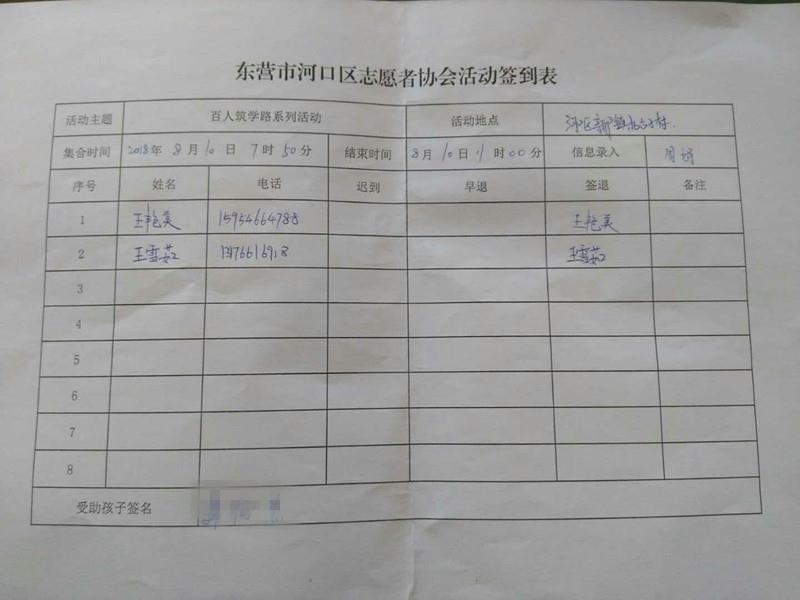 东营市河口区志愿者协会活动签到表
活动主题 百人筑学路系列活动 活动地点 河口区新户镇
集合时间 2018年 8月 10日 7时 50分 结束时间 8月 10日 11时 00分 信息录入 周婷
序号 姓名 电话 迟到 早退 签退 备注
1 王艳美 15954664788 王艳美
2 王雪茹 王雪茹
3
4
5
6
7
8
受助孩子签名